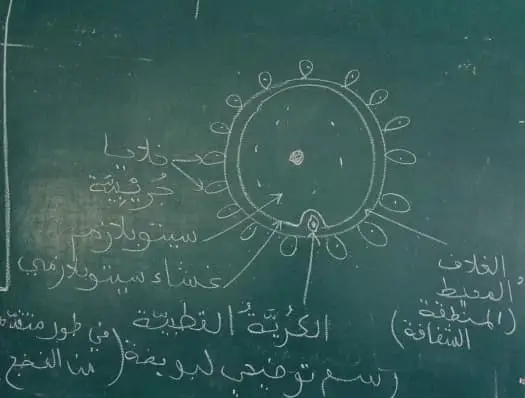 خلايا
جُريبيّة
سيتوبلازم
غشاء سيتوبلازمي
الغلاف
المحيط
(المنطقة
الشفافة)
الكُريّة القطبيّة
رسم توضيحي لبويضة (في طور متقدّم
من النضج